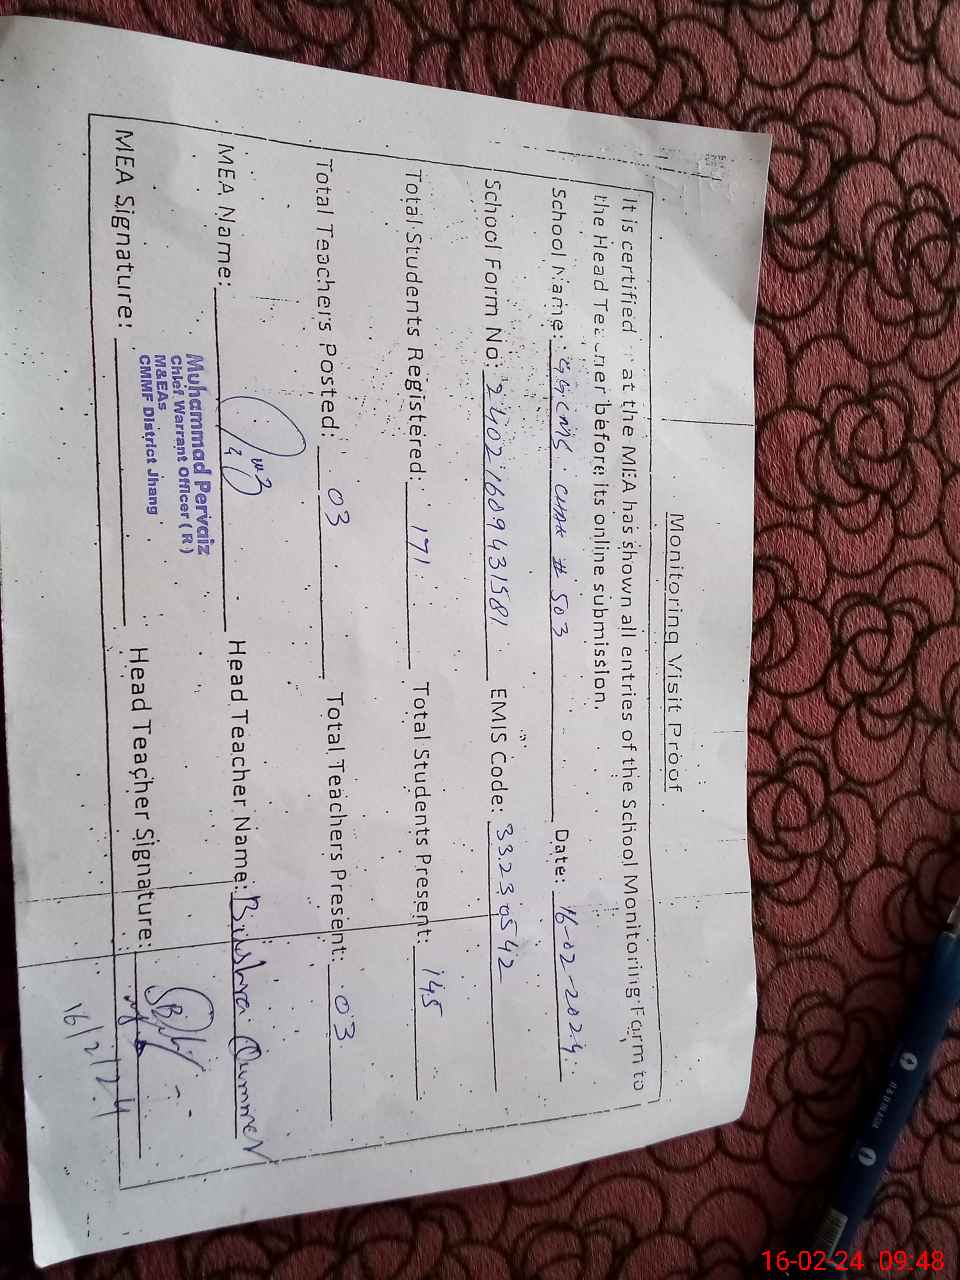 Monitoring Visit Proof
It is certified at the MEA has shown all entries of the School Monitoring Form to
the Head Teacher before its online submission.
School Name: GGCMS CHAK # 503 Date: 16-02-2024
School Form No: 24021609431581 EMIS Code: 33230542
Total Students Registered: 171 Total Students Present: 145
Total Teachers Posted: 03 Total Teachers Present: 03
MEA Name: Head Teacher Name: Bushra Qummer
Muhammad Pervaiz
Chief Warrant Officer (R)
M&EAs
CMMF District Jhang
MEA Signature: Head Teacher Signature:
16/2/24
16-02-24 09:48